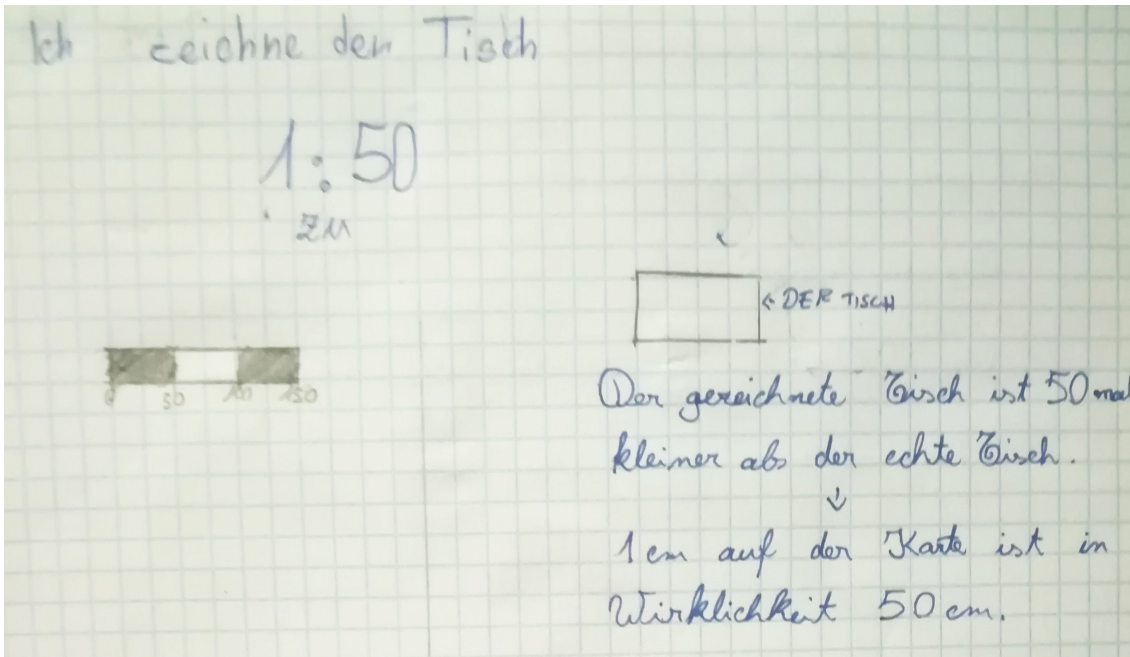 Ich zeichne den Tisch
1:50
zu
0 50 100 150
← DER TISCH
Der gezeichnete Tisch ist 50 mal
kleiner als der echte Tisch.
↓
1 cm auf der Karte ist in
Wirklichkeit 50 cm.